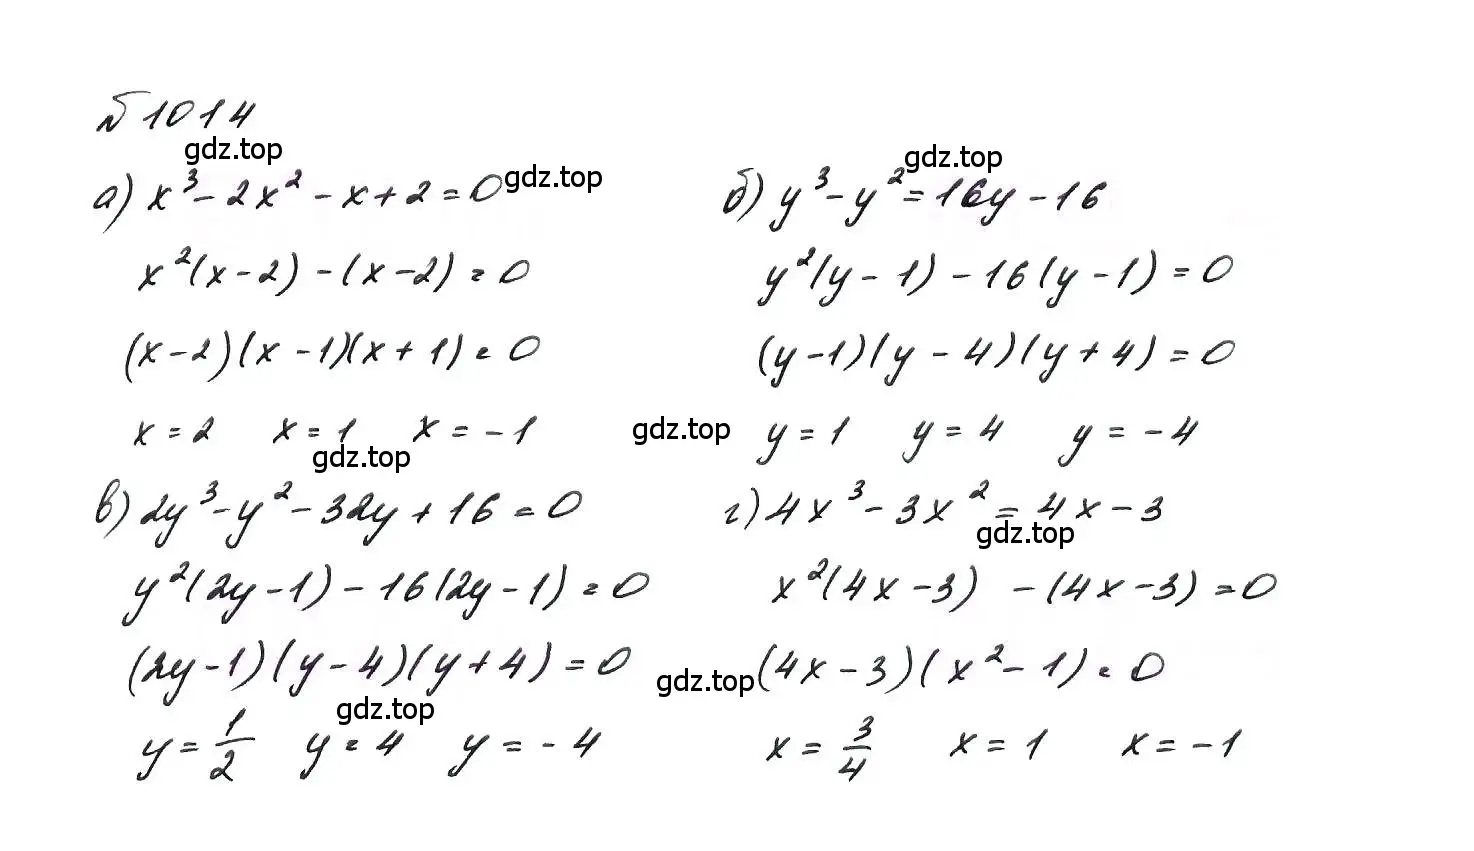 № 1014
gdz.top
а) x³ - 2x² - x + 2 = 0
gdz.top
x²(x - 2) - (x - 2) = 0
(x - 2)(x - 1)(x + 1) = 0
x = 2 x = 1 x = -1
gdz.top
gdz.top
б) y³ - y² = 16y - 16
y²(y - 1) - 16(y - 1) = 0
(y - 1)(y - 4)(y + 4) = 0
gdz.top
y = 1 y = 4 y = -4
в) 2y³ - y² - 32y + 16 = 0
y²(2y - 1) - 16(2y - 1) = 0
(2y - 1)(y - 4)(y + 4) = 0
gdz.top
y = 1/2 y = 4 y = -4
г) 4x³ - 3x² = 4x - 3
gdz.top
x²(4x - 3) - (4x - 3) = 0
gdz.top
(4x - 3)(x² - 1) = 0
x = 3/4 x = 1 x = -1